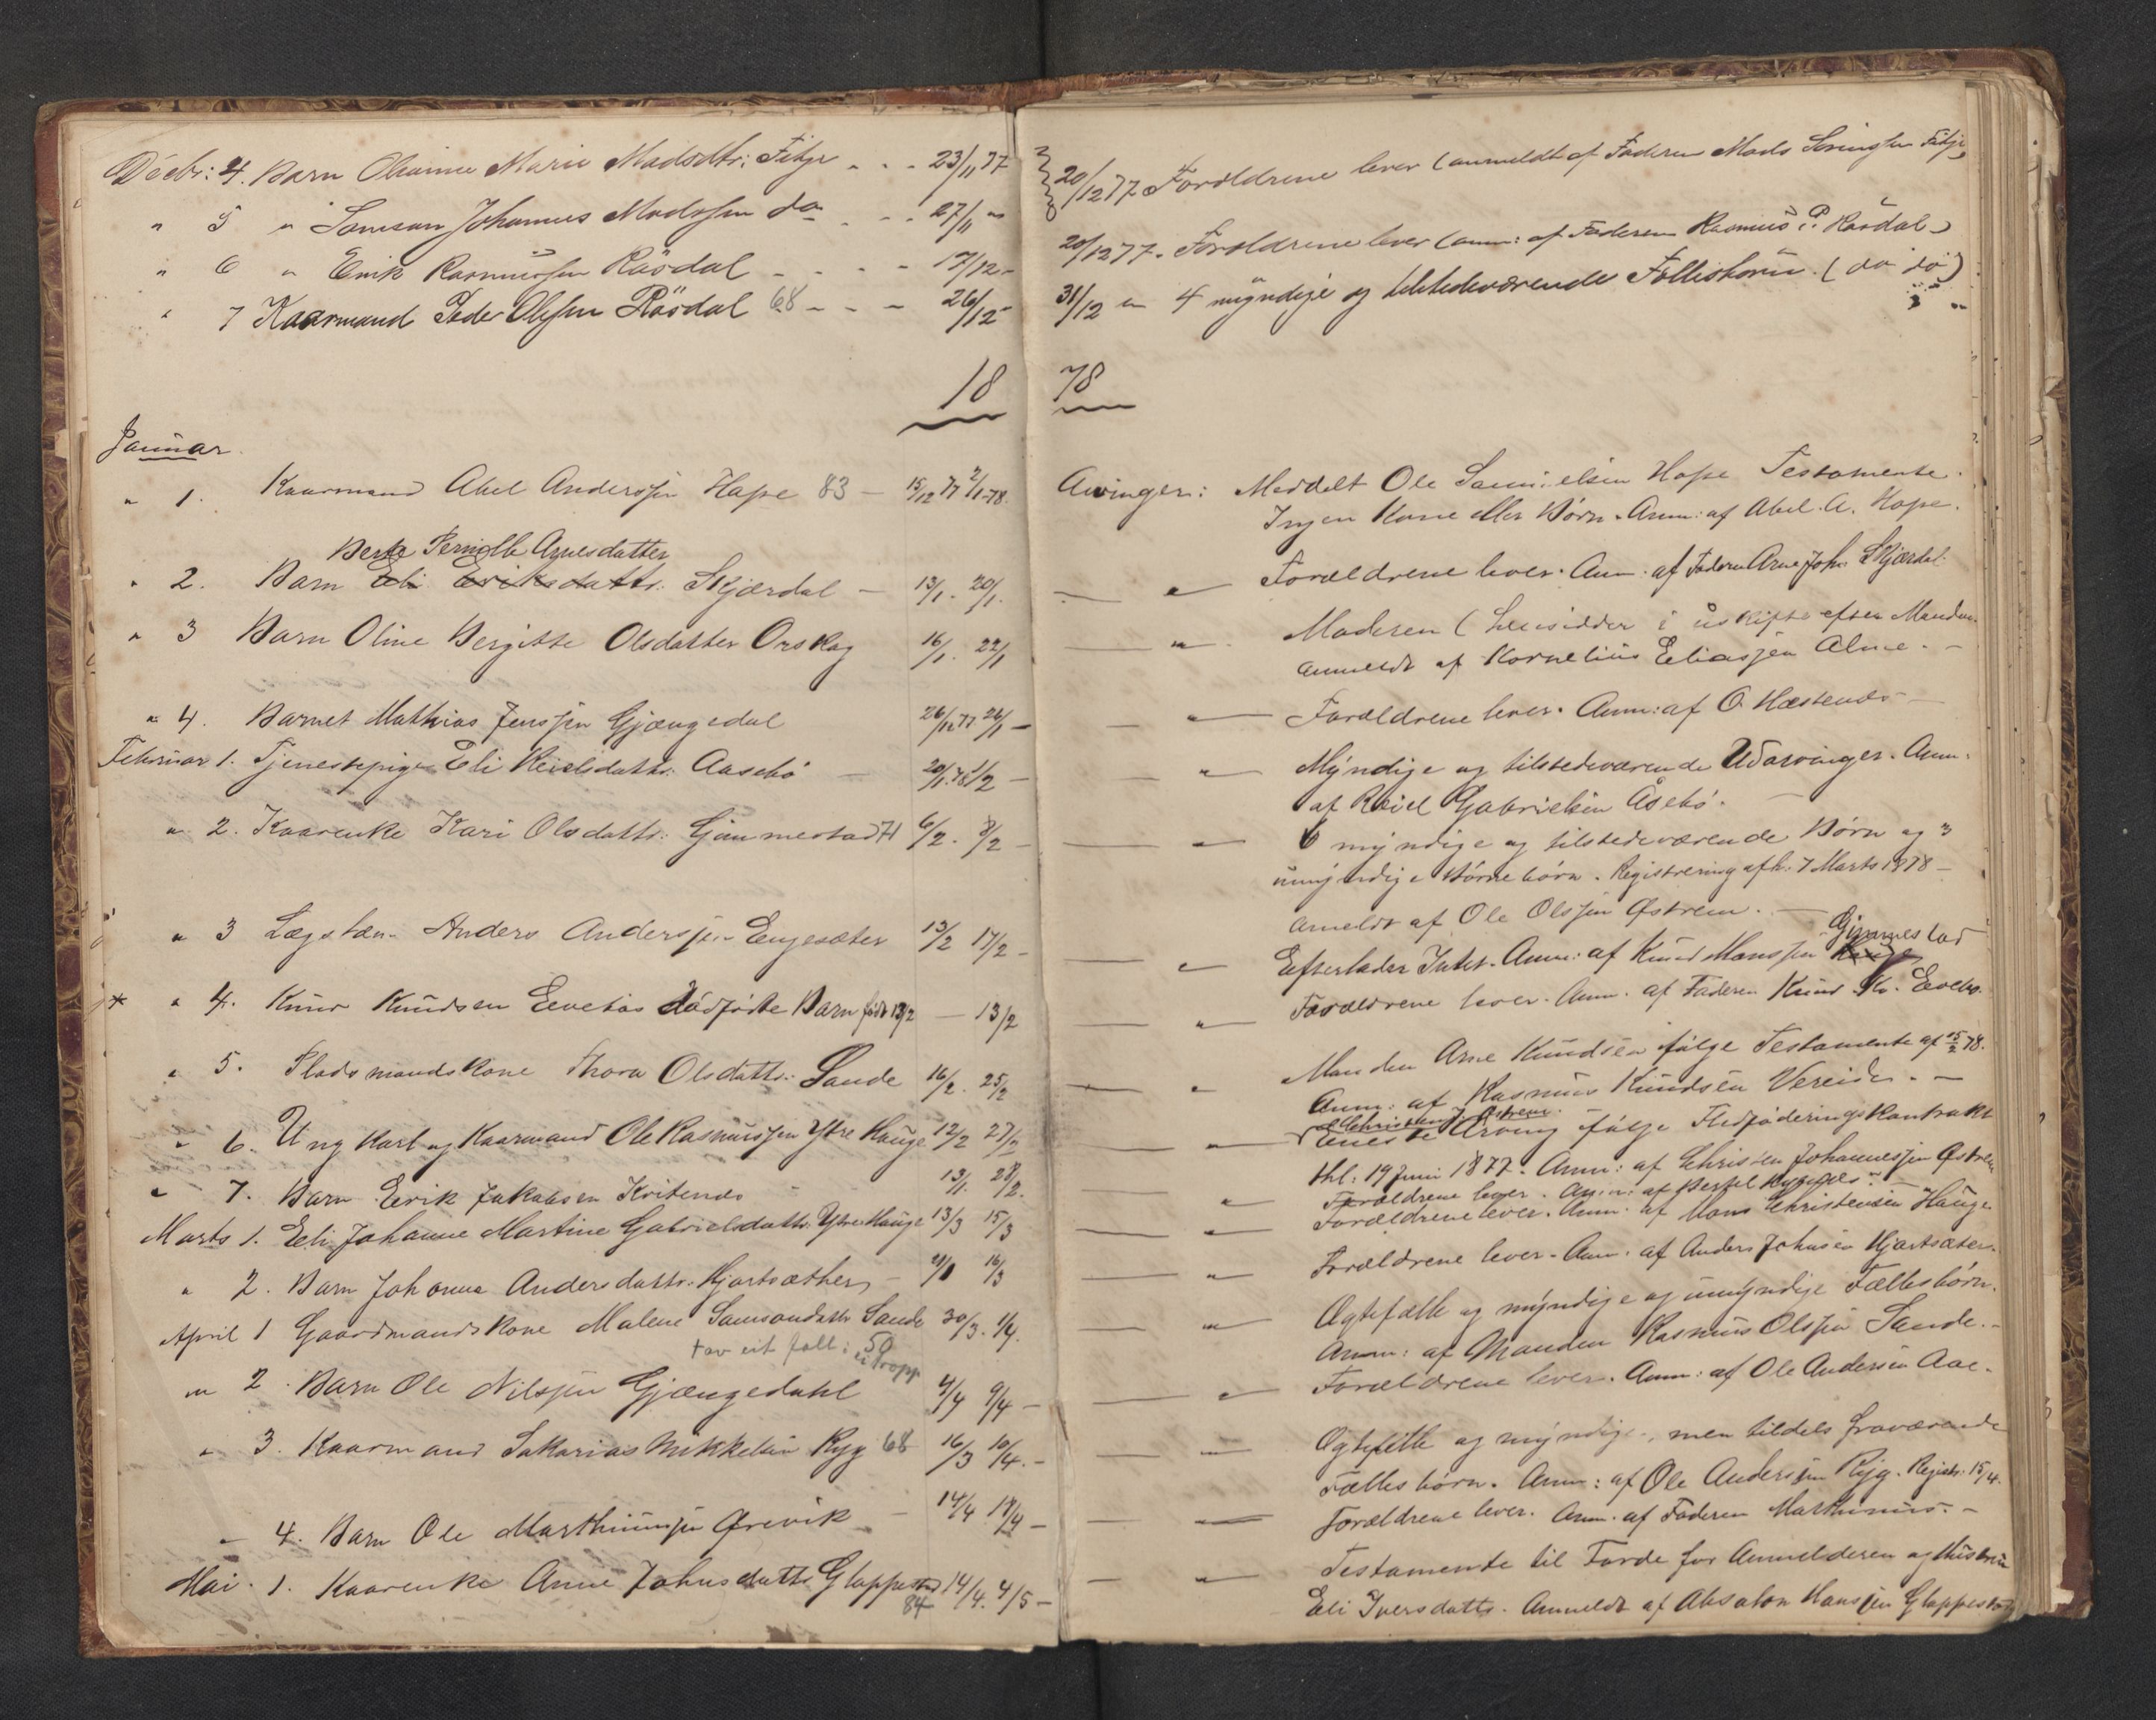 Decbr: 4. Barn Olianne Marie Madsdtr: Fitje - - - 23/11 77
" 5 " Samson Johannes Madssen do - - - 27/11 "
" 6 " Erik Rasmussen Råsdal - - - - 17/12 -
" 7 Kaarmand Peder Olsen Råsdal 68 - - - 26/12 -
18
Januar.
" 1. Kaarmand Abel Anderssen Hope 83 - 15/12 77 2/1-78.
Berte Pernille Arnesdatter
" 2. Barn Eli Eriksdattr. Skjærdal - 13/1. 20/1.
" 3 Barn Oline Bergitte Olsdatter Orskog 16/1. 22/1
" 4. Barnet Mathias Jenssen Gjængedal 26/12 77 26/1 -
Februar 1. Tjenestepige Eli Reielsdattr: Aasebø - 20/1.78 1/2 -
" 2. Kaarenke Kari Olsdattr: Gimmestad 71 6/2. 8/2 -
" 3 Lægslæm Anders Anderssen Engesæter 13/2 17/2 -
* " 4. Knud Knudsen Eevebøs dødfødte Barn født 13/2 - 13/2
" 5. Pladsmandskone Thora Olsdattr: Sande 16/2. 25/2
" 6. Ungkarl og Kaarmand Ole Rasmussen Ytre Hauge 12/2 27/2
" 7. Barn Eerik Jakobsen Kvitenes - 13/1. 28/2.
Marts 1. Eli Johanne Martine Gabrielsdattr. Ytre Hauge 13/3 15/3
" 2. Barn Johanne Andersdattr. Hjartsæther - 16/3
April 1 Gaardmandskone Malene Samsondattr Sande 30/3. 1/4.
+ av eit fall i 50
" 2. Barn Ole Nilssen Gjængedahl 4/4 9/4 -
" 3. Kaarmand Sakarias Mikkelsen Ryg 68 16/3 10/4. -
" 4. Barn Ole Marthinussen Ørevik - 14/4 18/4 -
Mai. 1. Kaarenke Anne Johnsdattr. Gloppestad 14/4. 4/5 -
84
20/12 77. Forældrene lever (anmeldt af Faderen Mads Fitje)
20/12 77. Forældrene lever (anm: af Faderen Rasmus P. Råsdal)
31/12 " 4 myndige og tilstedeværende Fællesbørn. (do do)
78
Arvinger: Meddelt Ole Samuelsen Hope Testamente.
Ingen Kone eller Børn. Anm: af Abel. A. Hope.
" Forældrene lever. Anm. af Faderen Arne Johs Skjærdal.
" Moderen (hensidder i uskifte efter Manden.
anmeldt af Kornelius Eliassen Alme. -
" Forældrene lever. Anm: af O. Hestenes -
" Myndige og tilstedeværende Udarvinger. Anm.
af Reiel Gabrielsen Åsebø. -
" 6 myndige og tilstedeværende Børn og 3
umyndige Børnebørn. Registrering afh. 7 Marts 1878 -
Anmeldt af Ole Olssen Østrem. -
Gimmestad
" Efterlader Intet. Anm: af Knud Monssen Hauge
" Forældrene lever. Anm. af Faderen Knud Kn. Eevebø.
" Manden Arne Knudsen følge Testamente af 15/2 78.
Anm: af Rasmus Knudsen Vereide. -
Christen J. Østrem.
" Eneste Arving følge Fledføderingskontrakt
thl: 19 Juni 1877. Anm: af Christen Johannessen Østrem
" Forældrene lever. Anm: af Bertel
" Forældrene lever. Anm. af Mons Christensen Hauge
" Forældrene lever. Anm. af Anders Johnsen Hjartsæter.
" Ægtefælle og myndige og umyndige Fællesbørn.
Anm: af Manden Rasmus Olssen Sande. -
" Forældrene lever. Anm: af Ole Andersen Aae.
" Ægtefælle og myndige, men tildels fraværende
Fællesbørn. Anm: af Ole Anderssen Ryg. Registr: 15/4.
" Forældrene lever. Anm. af Faderen Marthinus. -
" Testamente til Fordel for Anmelderen og Hustru
Eli Iversdattr. Anmeldt af Absalon Hanssen Gloppestad